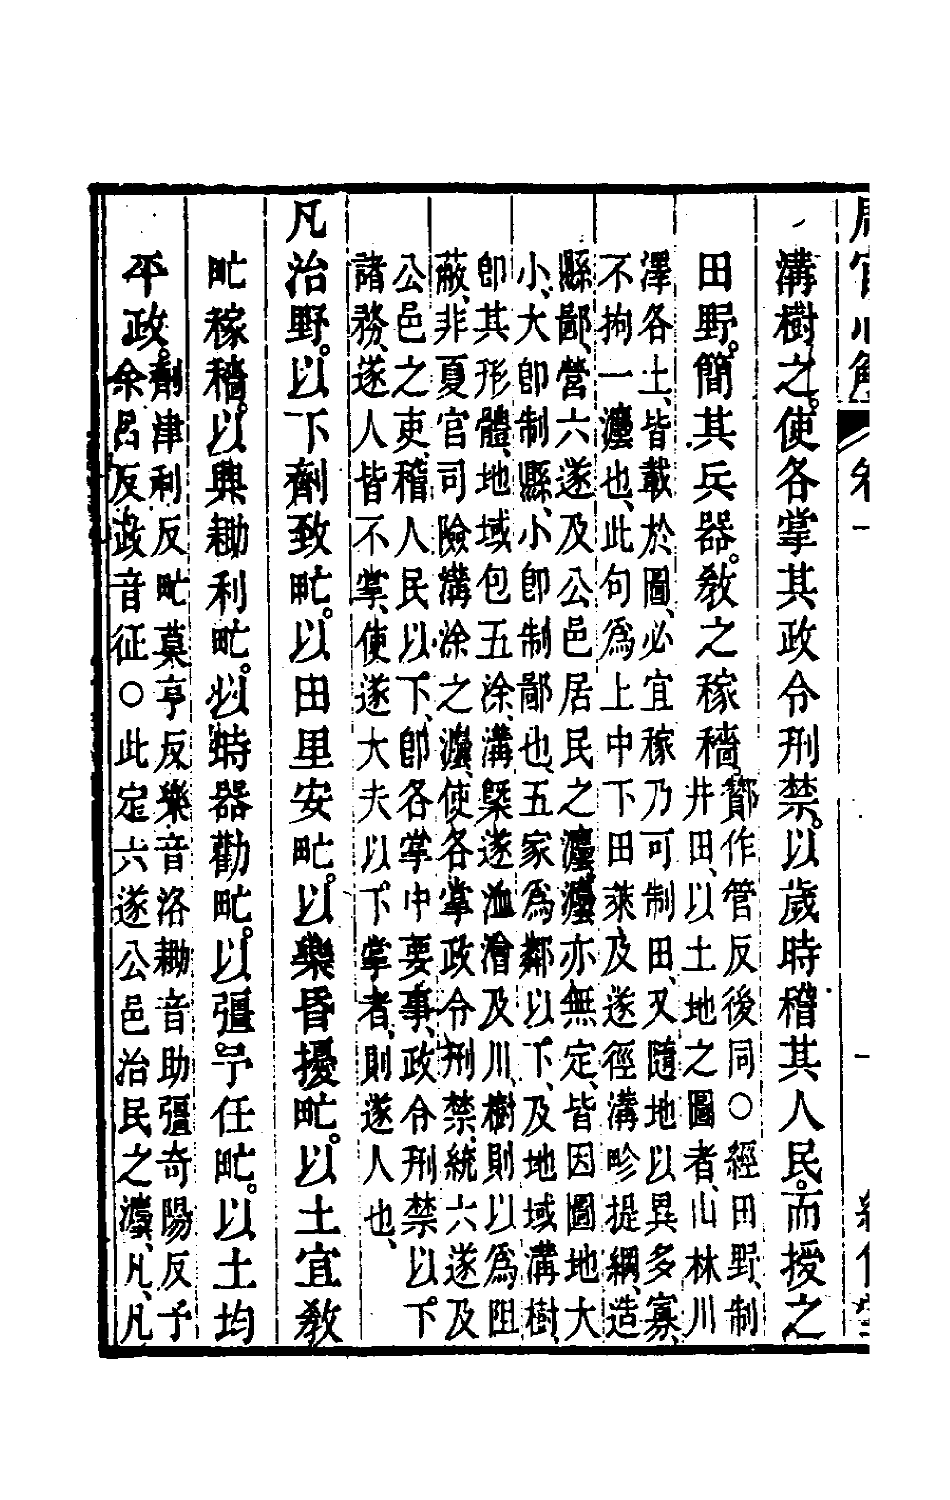 溝樹之。使各掌其政令刑禁。以歲時稽其人民。而授之
田野。簡其兵器。敎之稼穡。
鄼作管反後同〇經田野、制
井田、以土地之圖者、山林川
澤各土、皆載於圖、必宜稼乃可制田、又隨地以異多寡、
不拘一灋也、此句爲上中下田萊及遂徑溝畛提綱、造
縣鄙、營六遂及公邑居民之灋、灋亦無定、皆因圖地大
小、大卽制縣、小卽制鄙也、五家爲鄰以下、及地域溝樹、
卽其形體、地域包五涂、溝槩遂洫澮及川、樹則以爲阻
蔽、非夏官司險溝涂之灋、使各掌政令刑禁、統六遂及
公邑之吏、稽人民以下、卽各掌中要事、政令刑禁以下
諸務、遂人皆不掌、使遂大夫以下掌者、則遂人也、
凡治野。以下劑致甿。以田里安甿。以樂昏擾甿。以土宜敎
甿稼穡。以興耡利甿。以時器勸甿。以彊予任甿。以土均
平政。
劑津利反甿莫亨反樂音洛耡音助彊奇陽反予
余呂反政音征〇此定六遂公邑治民之灋、凡、凡